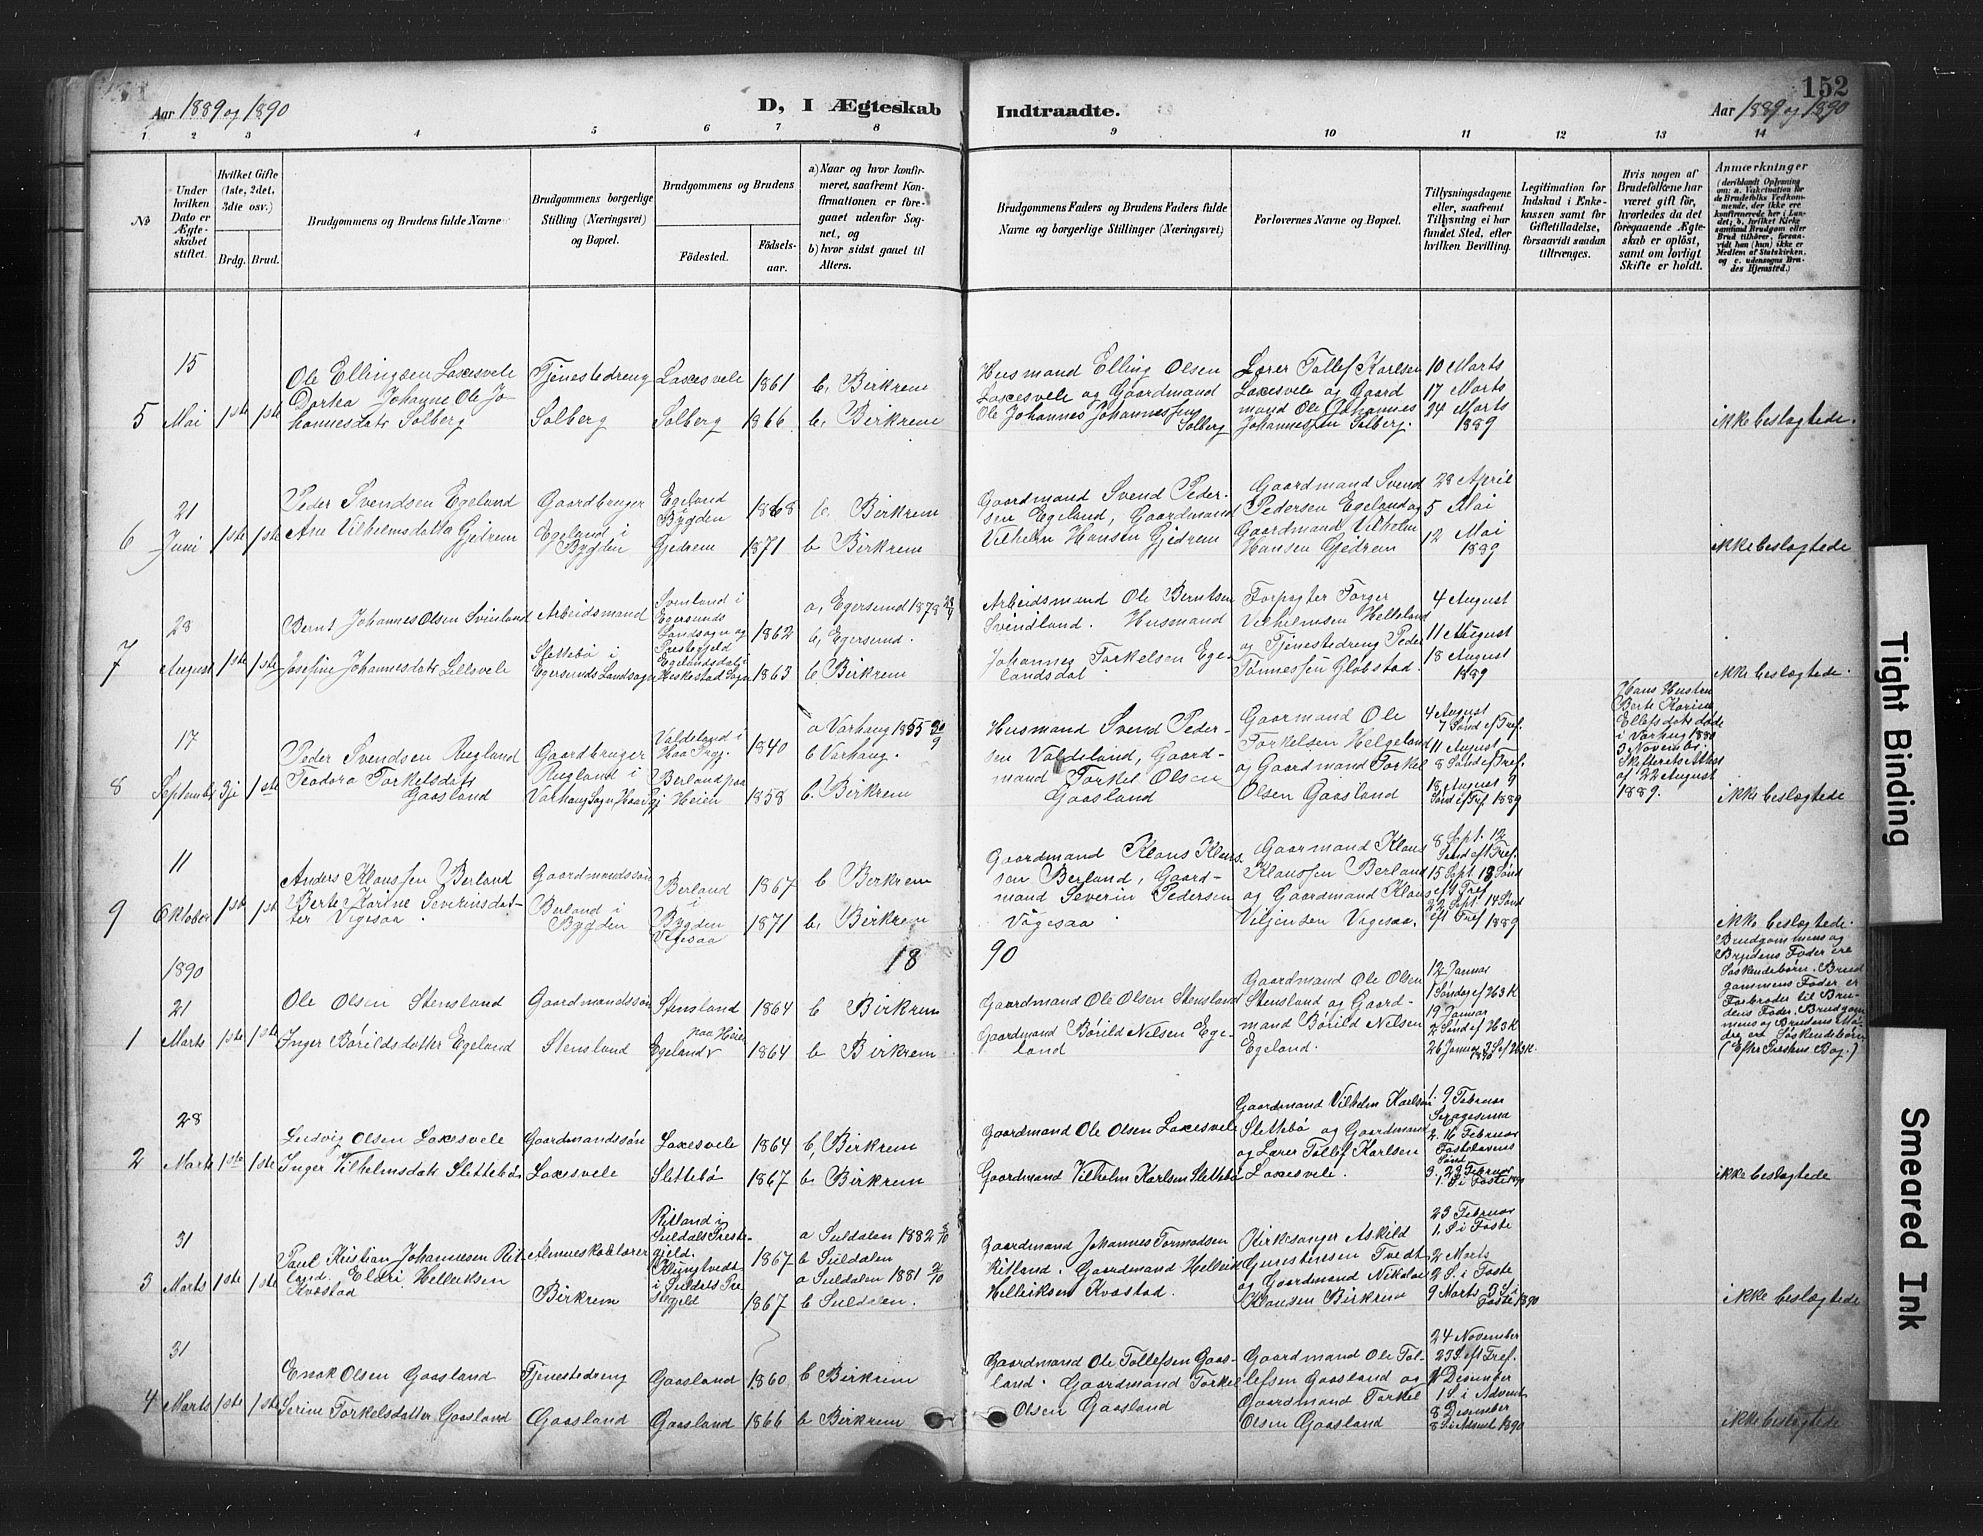 152
Aar 1889 og 1890
D, I Ægteskab
Indtraadte.
Aar 1889 og 1890
1 2 3 4 5 6 7 8 9 10 11 12 13 14
No
Under hvilken Dato er Ægteskabet stiftet.
Hvilket Gifte (1ste, 2det, 3dte osv.)
Brdg. Brud.
Brudgommens og Brudens fulde Navne
Brudgommens borgerlige Stilling (Næringsvei) og Bopæl.
Brudgommens og Brudens
Fødested.
Fødselsaar.
a) Naar og hvor konfirmeret, saafremt Konfirmationen er foregaaet udenfor Sognet, og
b) hvor sidst gaaet til Alters.
Brudgommens Faders og Brudens Faders fulde Navne og borgerlige Stillinger (Næringsvei)
Forlovernes Navne og Bopæl.
Tillysningsdagene eller, saafremt Tillysning ei har fundet Sted, efter hvilken Bevilling.
Legitimation for Indskud i Enkekassen samt for Giftetilladelse, forsaavidt saadan tiltrænges.
Hvis nogen af Brudefolkene har været gift før, hvorledes da det foregaaende Ægteskab er opløst, samt om lovligt Skifte er holdt.
Anmærkninger
5
15 Mai
1ste 1ste
Ole Ellingsen Laxesvele
Dorka Johanne Ole Johannesdatr Solberg
Tjenestedreng
Solberg
Laxesvele 1861 b, Birkrem
Solberg 1866 b, Birkrem
Husmand Elling Olsen
Laxesvele og Gaardmand
Ole Johannes Johannessen
Solberg
Lærer Tollef Karlsen
Laxesvele og Gaardmand Ole Johannes
Johannessen Solberg.
10 Marts
17 Marts
24 Marts
1889
ikke beslægtede.
6
21 Juni
1ste 1ste
Peder Svendsen Egeland
Ane Vilhelmsdatta Gjedrem
Gaardbruger
Egeland i Bygden
Egeland i Bygden 1868 b. Birkrem
Gjedrem 1871 b Birkrem
Gaardmand Svend Pedersen Egeland, Gaardmand
Vilhelm Hansen Gjedrem
Gaardmand Svend
Pedersen Egeland og
Gaardmand Vilhelm
Hansen Gjedrem
28 April
5 Mai
12 Mai
1889
ikke beslægtede
7
28 August
1ste 1ste
Bernt Johannes Olsen Svinland
Josefine Johannesdatr Lillsvele
Arbeidsmand
Slettebö i
Egersunds Landsogn
Svinland i Egersunds Landsogn og Prestegjeld 1862
Egelandsdal i Heskestad Sogn 1863
a, Egersund 1878
b, Egersund.
b Birkrem
Arbeidsmand Ole Berntsen
Svindland. Husmand
Johannes Torkelsen Egelandsdal
Forpagter Torger
Vilhelmsen Helleland
og Tjenestedreng Peder
Tønnessen Globstad.
4 August
11 August
18 August
1889
ikke beslægtede.
8
17 September
3je 1ste
Peder Svendsen Rugland
Teodora Torkelsdatr
Gaasland
Gaardbruger
Rugland i
Varhaug Sogn Haa Prgj
Valdeland i Haa Prgj. 1840
Berland paa Heien 1858
a Varhaug 1855 30/9
b Varhaug.
b. Birkrem
Husmand Svend Pedersen Valdeland, Gaardmand Torkel Olsen
Gaasland
Gaarmand Ole
Torkelsen Helgeland
og Gaardmand Torkel
Olsen Gaasland
4 August
7 Sønd ef Tref.
11 August
8 Sønd ef Tref.
18 August 9
Sønd ef Tref 1889
Hans Hustru
Berte Karine
Ellefsdatr døde
i Varhug 1880
3 November.
Skifterets Attest
af 22 August
1889.
ikke beslægtede
9
11 Oktober
1ste 1ste
Anders Klaussen Berland
Berte Karine Severinsdatter Vigesaa
Gaardmandssøn
Berland i Bygden
Berland i Bygden 1867 b Birkrem
Vigesaa 1871 b, Birkrem
Gaardmand Klaus Klaussen Berland, Gaardmand Severin Pedersen
Vögesaa
Gaarmand Klaus
Klaussen Berland
og Gaardmand Klaus
Viljensen Vøgesaa.
8 Sept. 12
Sønd eft Tref.
15 Sept 13 Sønd
eft Tref
22 Sept 14 Sønd
eft Tref 1889
ikke beslægtede.
1890
18 90
1
21 Marts
1ste 1ste
Ole Olsen Stensland
Inger Bórildsdatter Egeland
Gaardmandssøn
Stensland
Stensland 1864 b Birkrem
Egeland paa Heien 1864 b Birkrem
Gaardmand Ole Olsen Stensland
Gaardmand Børild Nilsen Egeland
Gaardmand Ole Olsen
Stensland og Gaardmand Børild Nilsen
Egeland.
12 Januar
1 Søndag ef H3K
19 Januar
2 Sønd ef H3K
26 Januar 3 S ef H3K.
1890
Brudgommens og
Brudens Fader ere
Søskendebørn. Brudgommens Fader er
Farbroder til Brudens Fader. Brudgommens og Brudens Modre ere Søskendebørn
(Efter Prestens Bog.)
2
28 Marts
1ste 1ste
Ludvig Olsen Laxesvele
Inger Vilhelmsdatr Slettebö
Gaardmandssøn
Laxesvele
Laxesvele 1864 b, Birkrem
Slettebö 1867 b. Birkrem
Gaardmand Ole Olsen Laxesvele
Gaardmand Vilhelm Karlsen Slettebö
Gaardmand Vilhelm Karlsen
Slettebö og Gaardmand
og Lærer Tollef Karlsen
Laxesvele.
1. 9 Februar
Sexagesima
2. 16 Februar
Fastelavens
Sønd
3. 23 Februar
1. S i Faste 1890
ikke beslægtede
3
31 Marts
1ste 1ste
Paul Kristian Johannesen Ritland. Eldri Helleiksen
Kvæstad
Almueskolelærer
Birkrem
Ritland i Suldals Prestegjeld. 1867
i Suldals Prestegjeld 1867
a Suldalen 1882
b Suldalen
a Suldalen 1881 2/10
b Suldalen.
Gaardmand Johannes Tormodsen
Ritland. Gaardmand Helleik
Helleiksen Kvæstad.
Kirkesanger Askild
Gunsteinsen Tvedt
og Gaardmand Nikolai
Klausen Birkrem
23 Februar
1. S i Faste
2 Marts
2 S. i Faste
9 Marts 3 S. i
Faste 1890
ikke beslægtede
4
31 Marts
1ste 1ste
Enok Olsen Gaasland
Serine Torkelsdatter Gaasland
Tjenestedreng
Gaasland
Gaasland 1860 b Birkrem
Gaasland 1866 b Birkrem
Gaardmand Ole Tollefsen Gaasland. Gaardmand Torkel
Olsen Gaasland
Gaardmand Ole Tollefsen Gaasland og
Gaardmand Torkel
Olsen Gaasland
24 November
23 S eft Tref.
1 Desember
1 S. i Advent
8 Desember
ikke beslægtede
Tight Binding
Smeared Ink